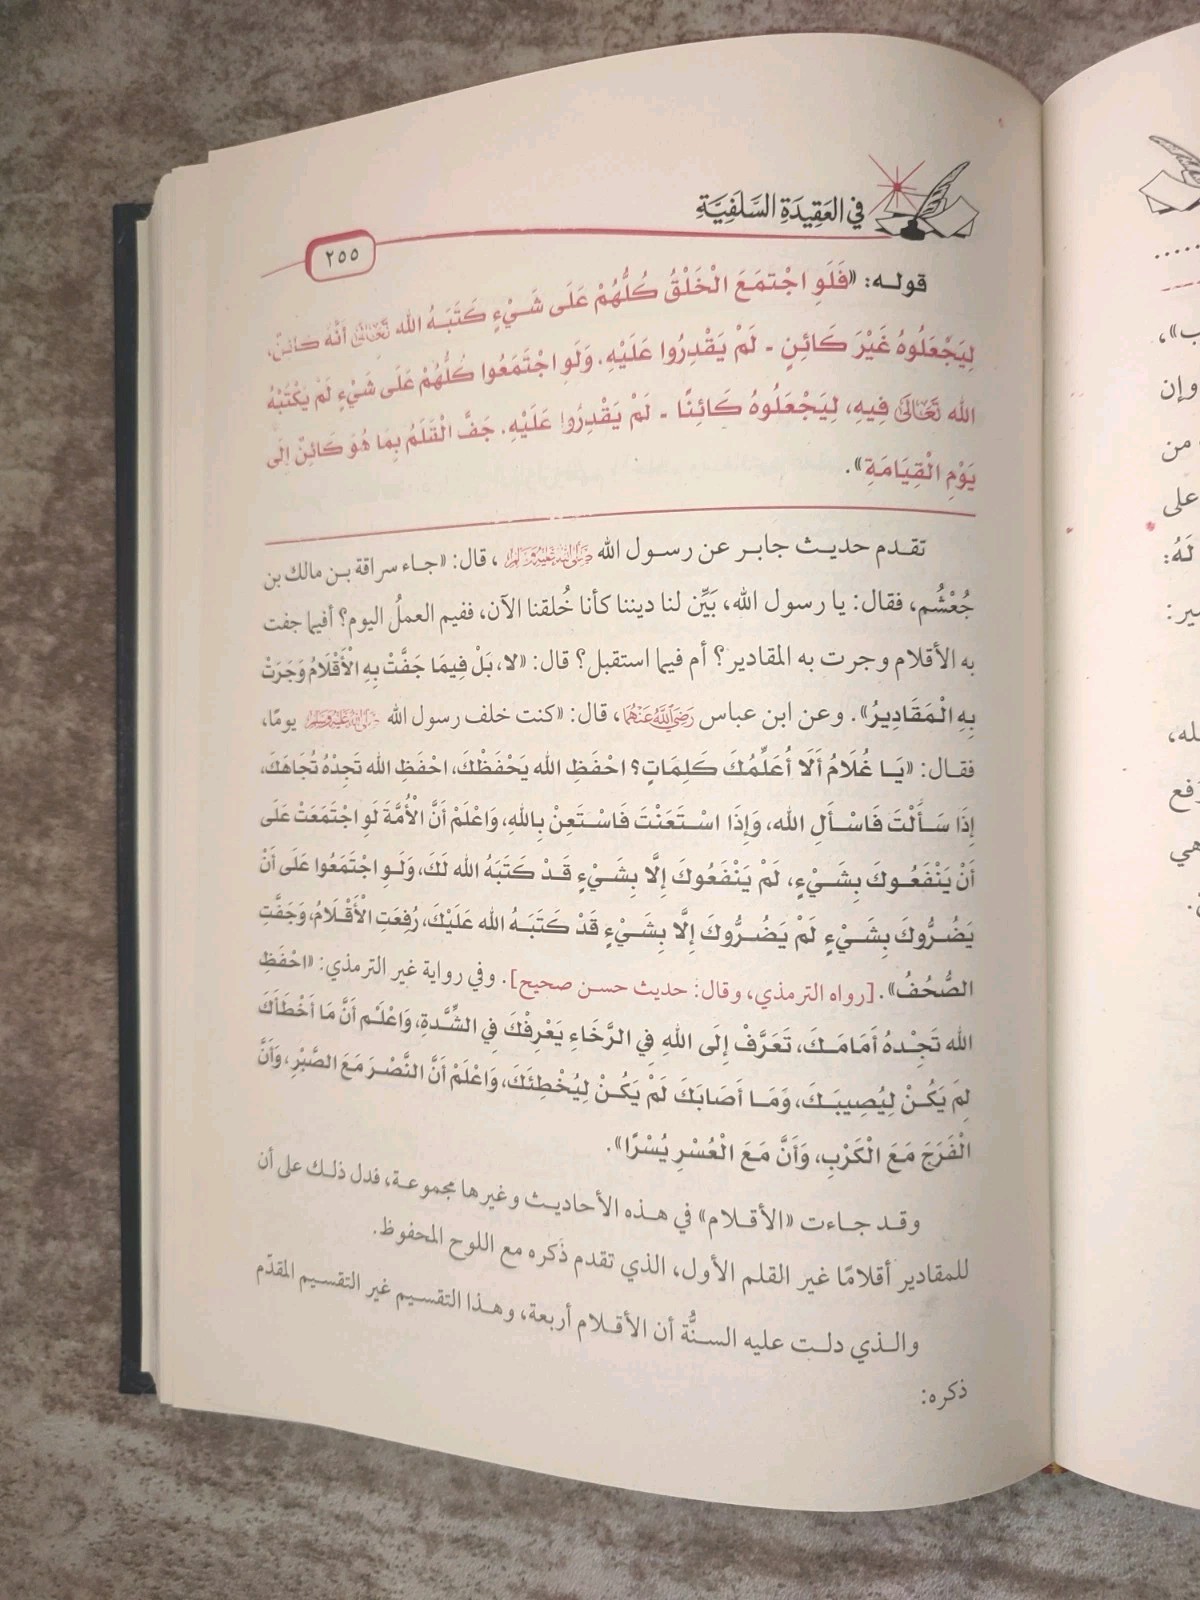 في العَقِيدَةِ السَّلَفِيَّةِ
٢٥٥
قوله: «فَلَوِ اجْتَمَعَ الْخَلْقُ كُلُّهُمْ عَلَى شَيْءٍ كَتَبَهُ الله تَعَالَى أَنَّهُ كَائِنٌ،
لِيَجْعَلُوهُ غَيْرَ كَائِنٍ - لَمْ يَقْدِرُوا عَلَيْهِ. وَلَوِ اجْتَمَعُوا كُلُّهُمْ عَلَى شَيْءٍ لَمْ يَكْتُبْهُ
الله تَعَالَى فِيهِ، لِيَجْعَلُوهُ كَائِنًا - لَمْ يَقْدِرُوا عَلَيْهِ. جَفَّ الْقَلَمُ بِمَا هُوَ كَائِنٌ إِلَى
يَوْمِ الْقِيَامَةِ».
تقدم حديث جابر عن رسول الله صَلَّى اللَّهُ عَلَيْهِ وَسَلَّمَ، قال: «جاء سراقة بن مالك بن
جُعْشُم، فقال: يا رسول الله، بَيِّن لنا ديننا كأنا خُلقنا الآن، ففيم العملُ اليوم؟ أفيما جفت
به الأقلام وجرت به المقادير؟ أم فيما استقبل؟ قال: «لا، بَلْ فِيمَا جَفَّتْ بِهِ الْأَقْلَامُ وَجَرَتْ
بِهِ الْمَقَادِيرُ». وعن ابن عباس رَضِيَ اللَّهُ عَنْهُمَا، قال: «كنت خلف رسول الله صَلَّى اللَّهُ عَلَيْهِ وَسَلَّمَ يومًا،
فقال: «يَا غُلَامُ أَلَا أُعَلِّمُكَ كَلِمَاتٍ؟ احْفَظِ الله يَحْفَظْكَ، احْفَظِ الله تَجِدْهُ تُجَاهَكَ،
إِذَا سَأَلْتَ فَاسْأَلِ الله، وَإِذَا اسْتَعَنْتَ فَاسْتَعِنْ بِاللهِ، وَاعْلَمْ أَنَّ الْأُمَّةَ لَوِ اجْتَمَعَتْ عَلَى
أَنْ يَنْفَعُوكَ بِشَيْءٍ، لَمْ يَنْفَعُوكَ إِلَّا بِشَيْءٍ قَدْ كَتَبَهُ الله لَكَ، وَلَوِ اجْتَمَعُوا عَلَى أَنْ
يَضُرُّوكَ بِشَيْءٍ لَمْ يَضُرُّوكَ إِلَّا بِشَيْءٍ قَدْ كَتَبَهُ الله عَلَيْكَ، رُفِعَتِ الْأَقْلَامُ، وَجَفَّتِ
الصُّحُفُ». [رواه الترمذي، وقال: حديث حسن صحيح]. وفي رواية غير الترمذي: «احْفَظِ
الله تَجِدْهُ أَمَامَكَ، تَعَرَّفْ إِلَى اللهِ فِي الرَّخَاءِ يَعْرِفْكَ فِي الشِّدَّةِ، وَاعْلَمْ أَنَّ مَا أَخْطَأَكَ
لَمْ يَكُنْ لِيُصِيبَكَ، وَمَا أَصَابَكَ لَمْ يَكُنْ لِيُخْطِئَكَ، وَاعْلَمْ أَنَّ النَّصْرَ مَعَ الصَّبْرِ، وَأَنَّ
الْفَرَجَ مَعَ الْكَرْبِ، وَأَنَّ مَعَ الْعُسْرِ يُسْرًا».
وقد جاءت «الأقلام» في هذه الأحاديث وغيرها مجموعة، فدل ذلك على أن
للمقادير أقلامًا غير القلم الأول، الذي تقدم ذكره مع اللوح المحفوظ.
والذي دلت عليه السنُّة أن الأقلام أربعة، وهذا التقسيم غير التقسيم المقدّم
ذكره:
ب»،
وإن
من
على
لَهُ:
سير:
لله،
رفع
هي